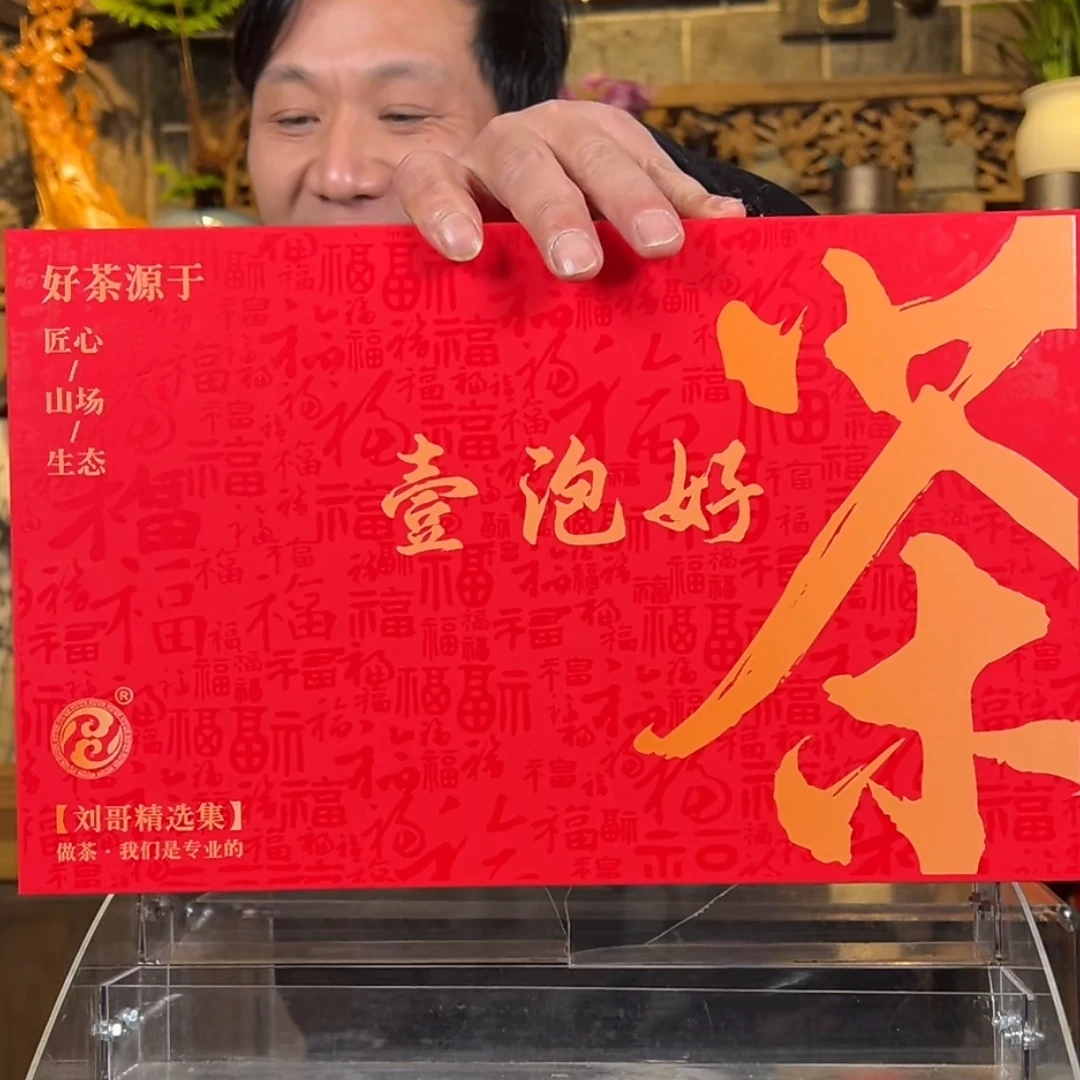 好茶源于
匠心
/
山场
/
生态
壹泡好
茶
®
【刘哥精选集】
做茶·我们是专业的